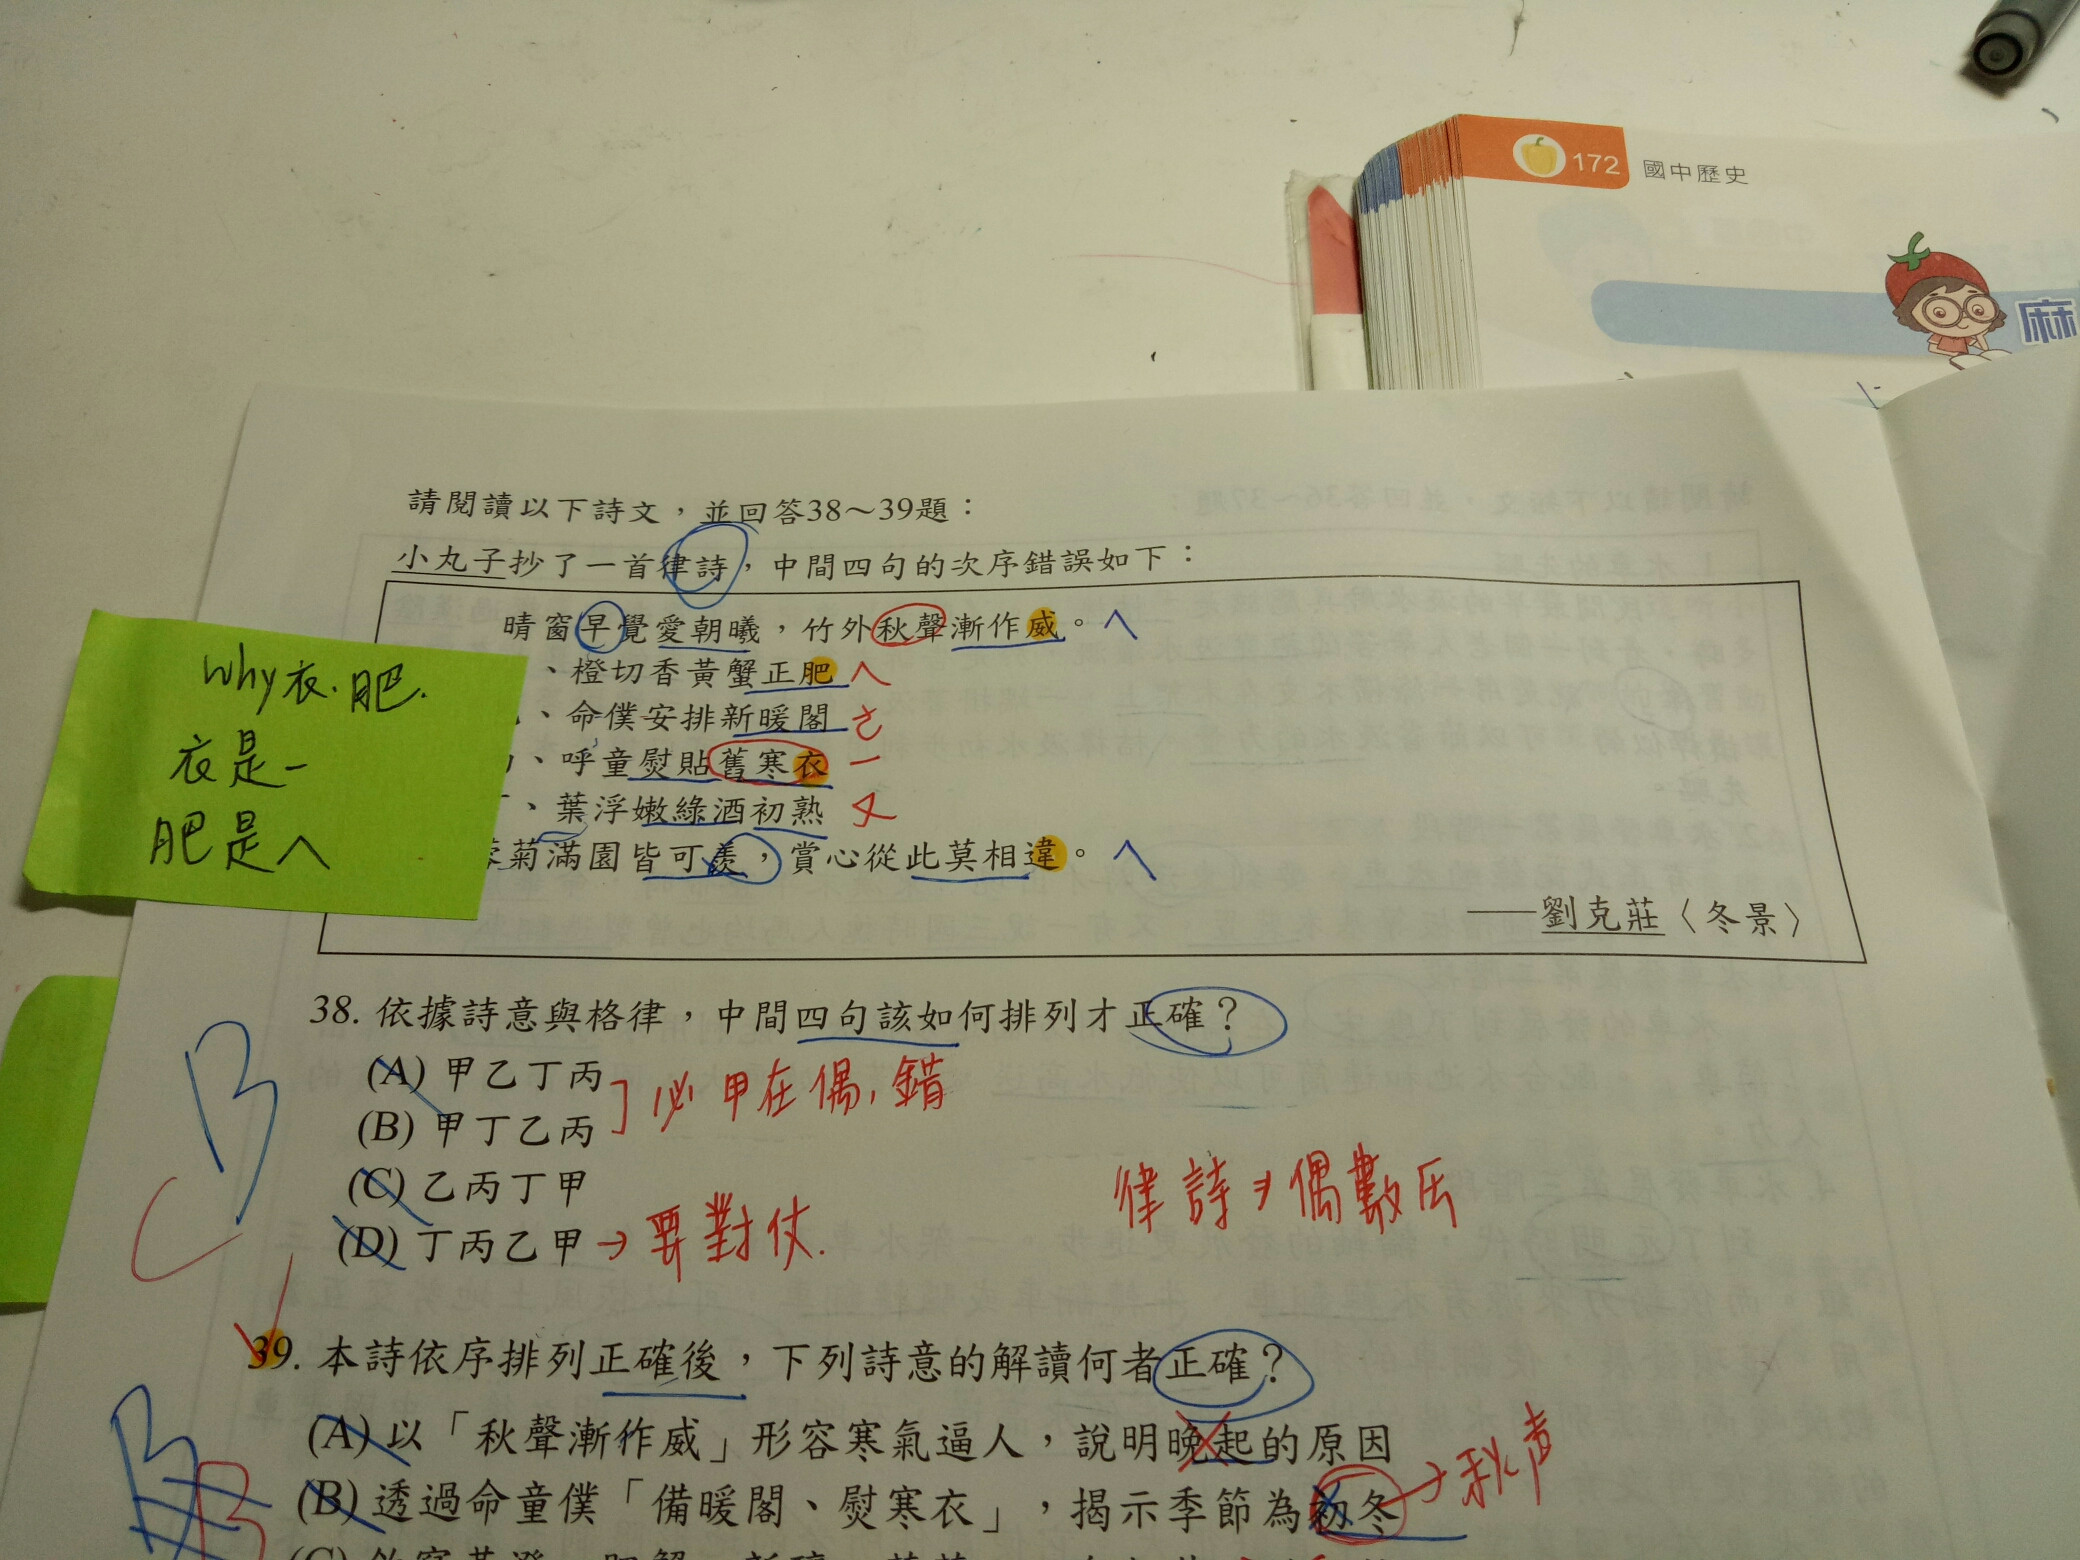 172 國中歷史
麻
請閱讀以下詩文，並回答38～39題：
小丸子抄了一首律詩，中間四句的次序錯誤如下：
晴窗早覺愛朝曦，竹外秋聲漸作威。ㄟ
、橙切香黃蟹正肥 ㄟ
、命僕安排新暖閣 ㄜ
、呼童熨貼舊寒衣 ㄧ
、葉浮嫩綠酒初熟 ㄡ
蓉菊滿園皆可羨，賞心從此莫相違。ㄟ
——劉克莊〈冬景〉
why衣.肥.
衣是ㄧ
肥是ㄟ
38. 依據詩意與格律，中間四句該如何排列才正確？
B
C
(A) 甲乙丁丙
(B) 甲丁乙丙
必甲在偶，錯
(C) 乙丙丁甲
(D) 丁丙乙甲→要對仗.
律詩→偶數押
39. 本詩依序排列正確後，下列詩意的解讀何者正確？
B
(A) 以「秋聲漸作威」形容寒氣逼人，說明晚起的原因
(B) 透過命童僕「備暖閣、熨寒衣」，揭示季節為初冬→秋声